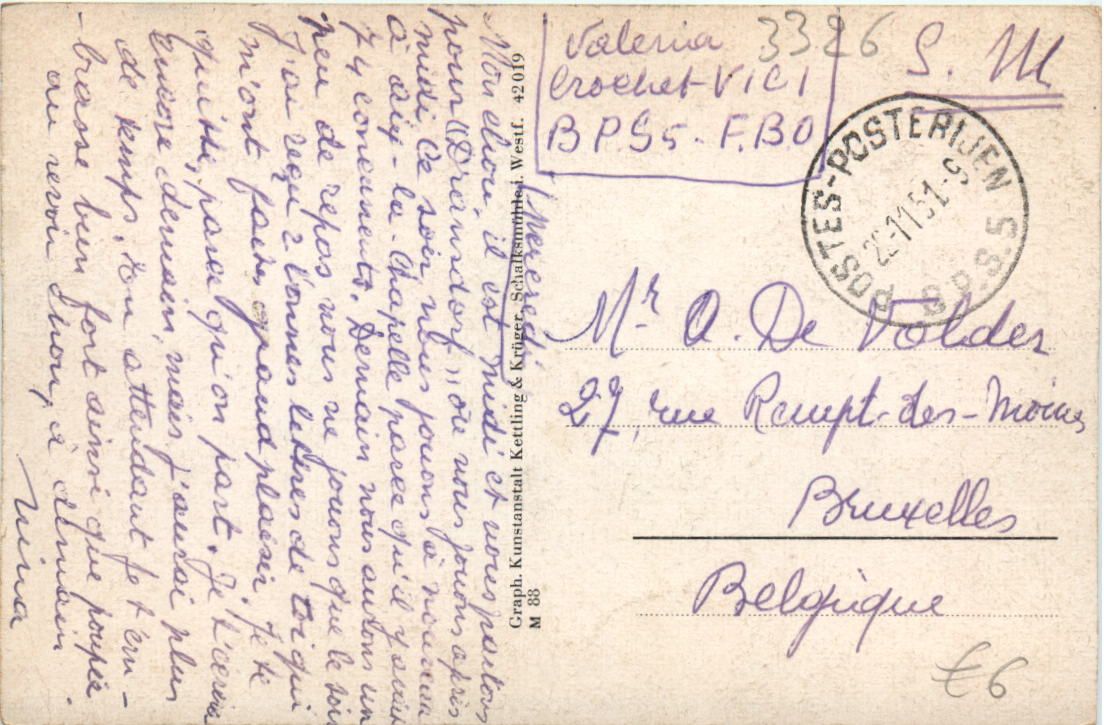 Valeria
Crochet-VICI
B.P.S5 - F.B.O
3326
S. M
POSTES-POSTERIJEN
22-11 51-9
B.P.S.5
Mr A. De Volder
27, rue Rempt-des-Moines
Bruxelles
Belgique
€6
Graph. Kunstanstalt Kettling & Krüger, Schalksmühle i. Westf. 42019
M 88
Mercredi
Mon chou, il est midi et nous partons
pour "Dreiundorf" où nous jouons après
midi. Ce soir nous jouons à nouveau
à Aix-la-Chapelle parce qu'il y avait
74 Demain nous aurons un
peu de repos nous ne jouons que le soir
J'ai reçu 2 bonnes lettres de toi qui
m'ont fait grand plaisir. Je te
quitte, parce qu'on part. Je t'écrirai
encore demain, mais j'aurai plus
de temps. En attendant je t'em-
-brasse bien fort ainsi que poupée
au revoir chou, à demain.
Nina